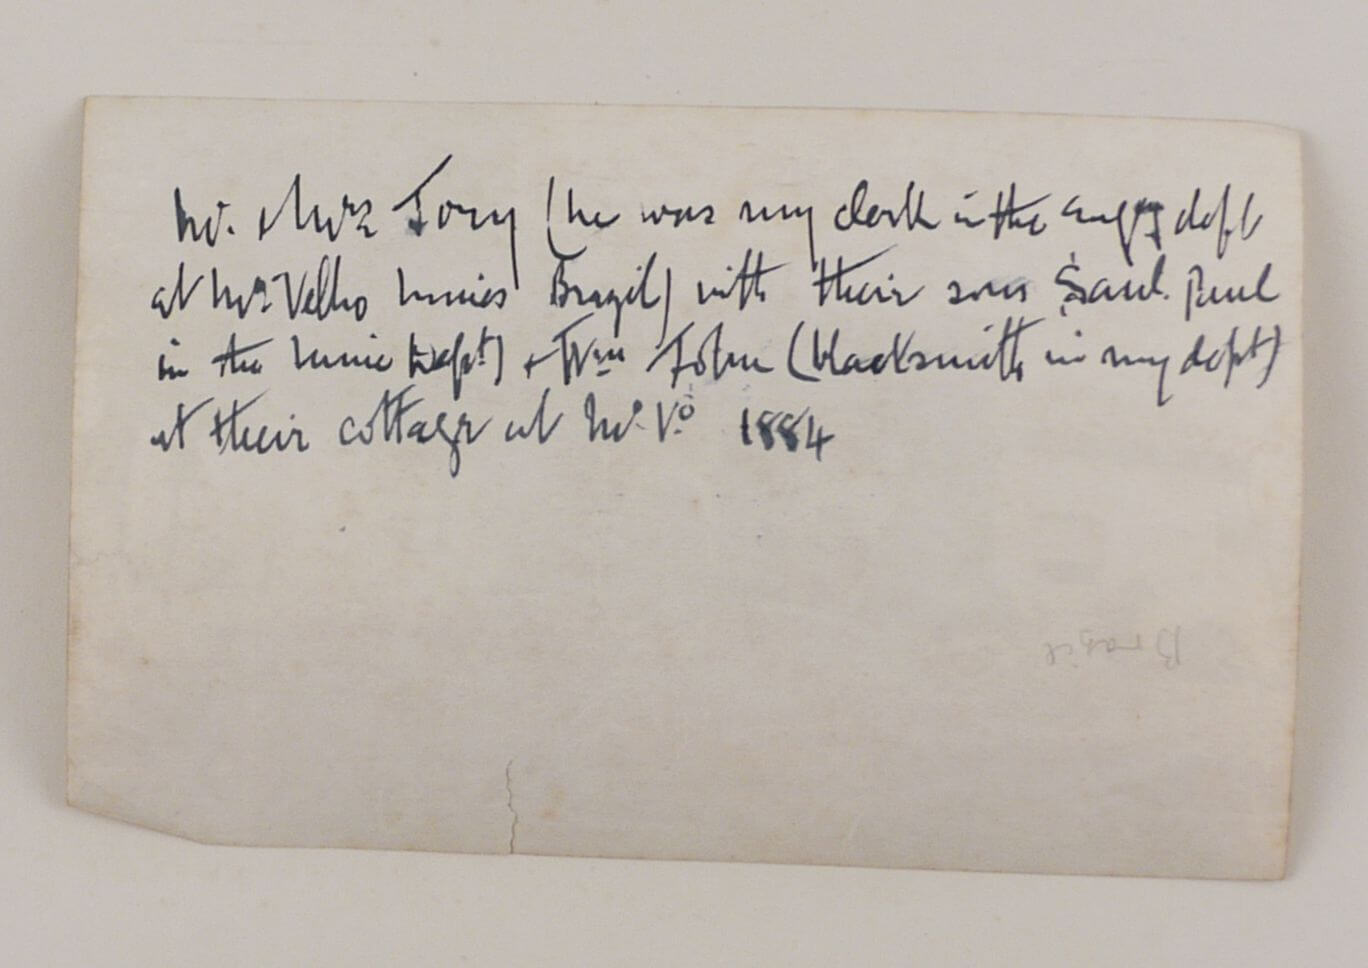 Mr. & Mrs Tory (he was my clerk in the engrg dept
at Mo Velho mines Brazil) with their sons Saml. Paul
in the mine Dept.) & Wm John (blacksmith in my dept)
at their cottage at Mo. Vo. 1884
Brazil